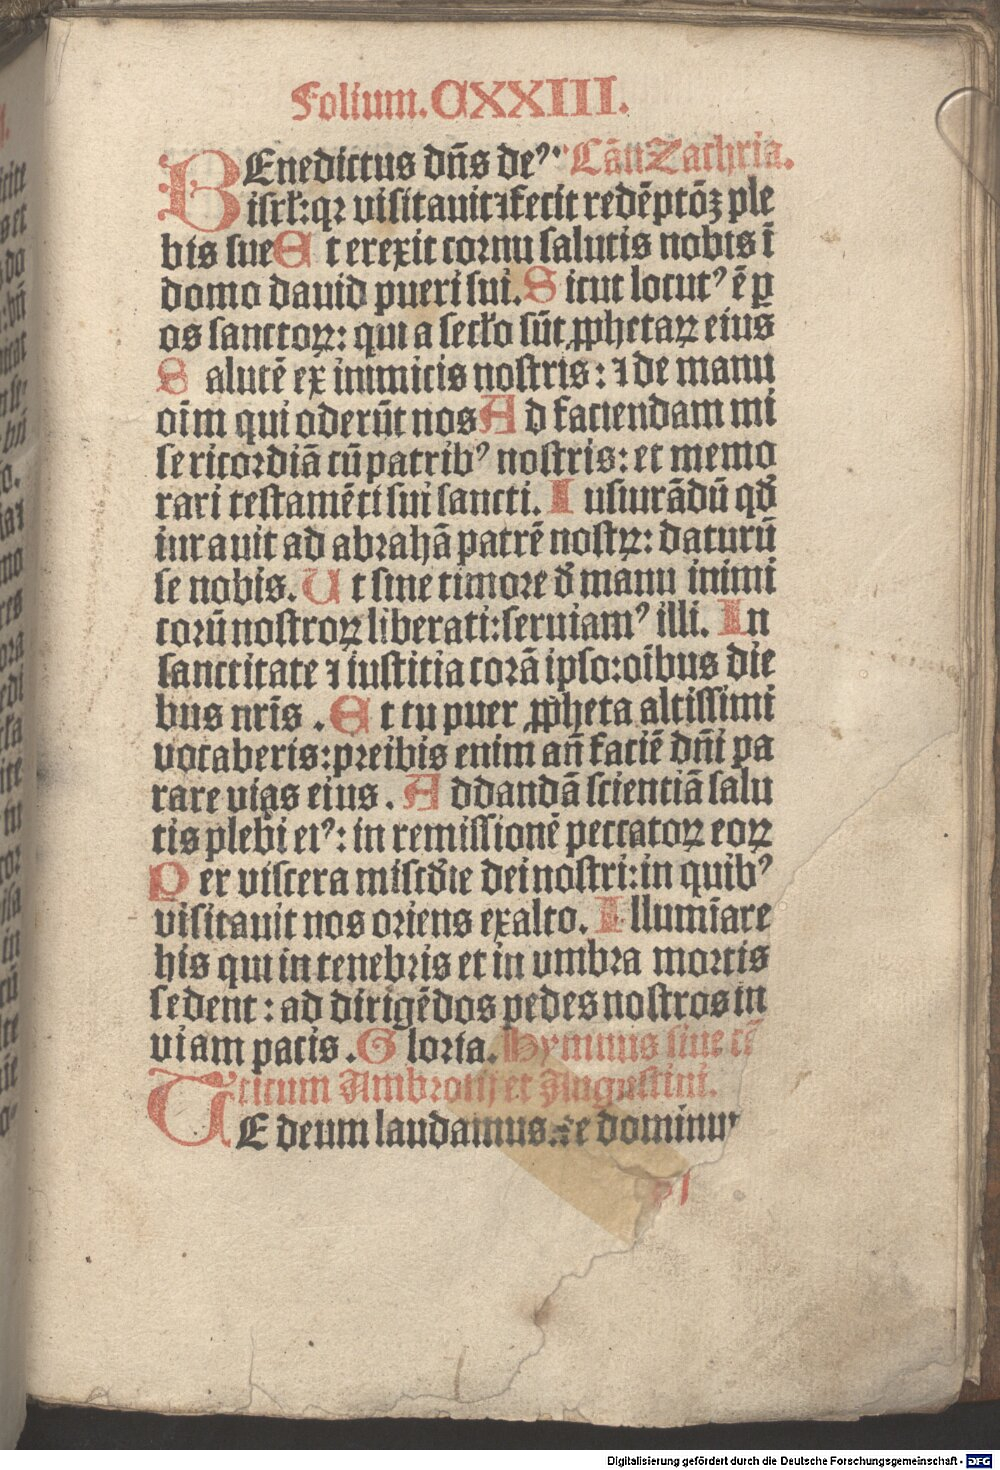 Folium. CXXIII.
BEnedictus dn̄s deꝰ Cāti Zachria.
isrł: qꝛ visitauit ⁊ fecit redēptōꝫ ple
bis sue Et erexit cornu salutis nobis ī
domo dauid pueri sui. Sicut locutꝰ ē ꝑ
os sanctoꝝ: qui a secło sūt ꝓphetaꝝ eius
Salutē ex inimicis nostris: ⁊ de manu
oīm qui oderūt nos Ad faciendam mi
sericordiā cū patribꝰ nostris: et memo
rari testamēti sui sancti. Iusiurādū qđ
iurauit ad abrahā patrē nostꝝ: daturū
se nobis. Ut sine timore đ manu inimi
corū nostroꝝ liberati: seruiamꝰ illi. In
sanctitate ⁊ iusticia corā ipso: oībus die
bus nrīs . Et tu puer ꝓpheta altissimi
vocaberis: preibis enim an̄ faciē dn̄i pa
rare vias eius . Ad dandā scientiā salu
tis plebi eiꝰ: in remissionē peccatoꝝ eoꝝ
Per viscera miscđie dei nostri: in quibꝰ
visitauit nos oriens exalto. Illumīare
his qui in tenebris et in vmbra mortis
sedent: ad dirigēdos pedes nostros in
viam pacis . Gloria. Hymnus siue cā
ticum Ambrosij et Augustini.
TE deum laudamus. te dominum
Digitalisierung gefördert durch die Deutsche Forschungsgemeinschaft - DFG